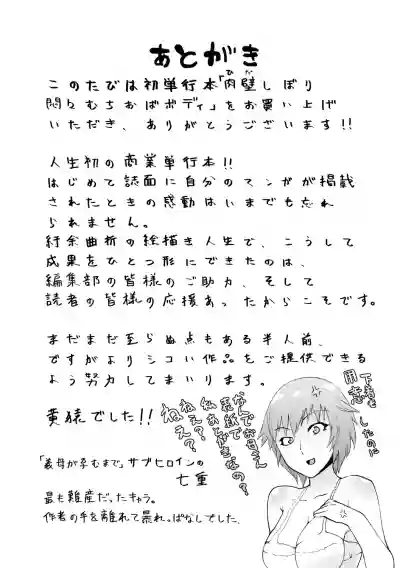 あとがき
このたびは初単行本「肉壁しぼり
悶々むちおばボディ」をお買い上げ
いただき、ありがとうございます!!
人生初の商業単行本!!
はじめて誌面に自分のマンガが掲載
されたときの感動はいまでも忘れ
られません。
紆余曲折の絵描き人生で、こうして
成果をひとつ形にできたのは、
編集部の皆様のご助力、そして
読者の皆様の応援あったからこそです。
まだまだ至らぬ点もある半人前、
ですがよりシコい作品をご提供できる
よう努力してまいります。
黄猿でした!!
下着も
用意
したのに
なんでお前え
表紙で
私あとがきなの?
ねぇ?
ねえ?
「義母が孕むまで」サブヒロインの
七重
最も難産だったキャラ。
作者の手を離れて暴れっぱなしでした。